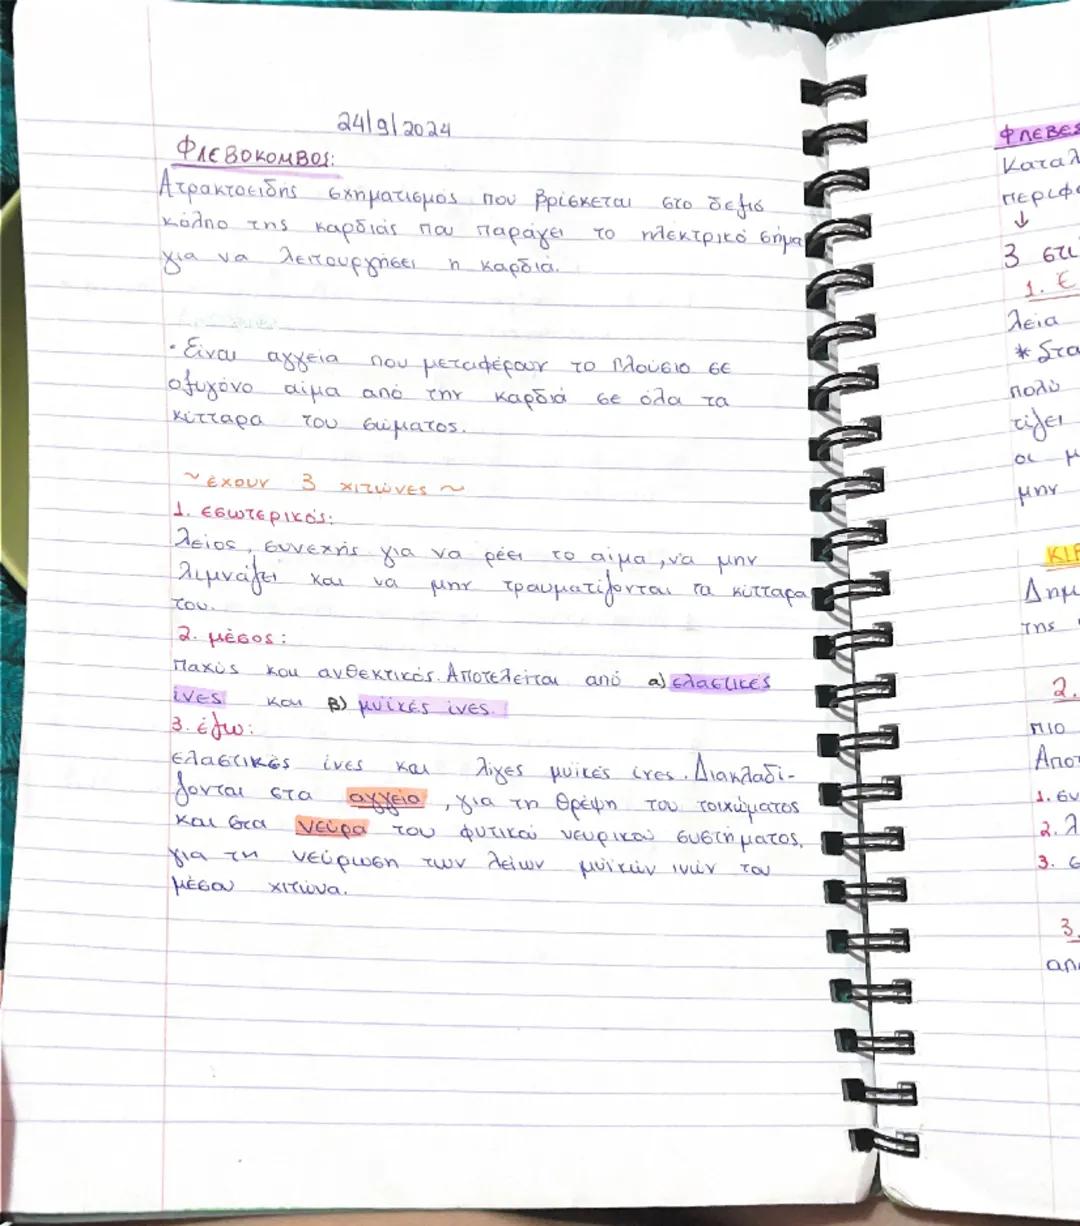 24/9/2024
ΦΛΕΒΟΚΟΜΒΟΣ:
Ατρακτοειδής σχηματισμός που βρίσκεται στο δεξιό
κόλπο της καρδιάς που παράγει το ηλεκτρικό σήμα
για να λειτουργήσει η καρδιά.
• Είναι αγγεία που μεταφέρουν το πλούσιο σε
οξυγόνο αίμα από την καρδιά σε όλα τα
κύτταρα του σώματος.
~ έχουν 3 χιτώνες ~
1. εσωτερικός:
λείος, συνεχής για να ρέει το αίμα, να μην
λιμνάζει και να μην τραυματίζονται τα κύτταρα
του.
2. μέσος:
παχύς και ανθεκτικός. Αποτελείται από α) ελαστικές
ίνες και β) μυϊκές ίνες.
3. έξω:
ελαστικές ίνες και λίγες μυϊκές ίνες. Διακλαδί-
ζονται στα αγγεία, για τη θρέψη του τοιχώματος
και στα νεύρα του φυτικού νευρικού συστήματος,
για τη νεύρωση των λείων μυϊκών ινών του
μέσου χιτώνα.
ΦΛΕΒΕΣ
3
1.
λεία
πολύ
οι
μην
της
2.
πιο
1.
2. λ
3.
3.